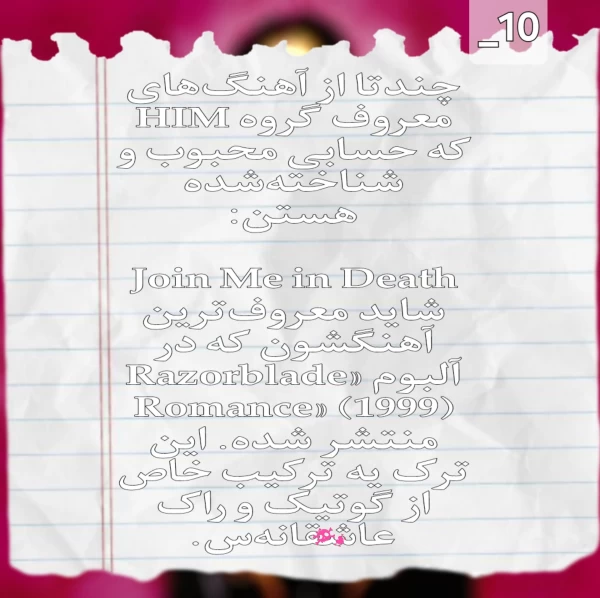 _10
چندتا از آهنگ‌های
معروف گروه HIM
که حسابی محبوب و
شناخته‌شده
هستن:
Join Me in Death
شاید معروف‌ترین
آهنگشون که در
آلبوم «Razorblade
Romance» (1999)
منتشر شده. این
ترک یه ترکیب خاص
از گوتیک و راک
عاشقانه‌س.